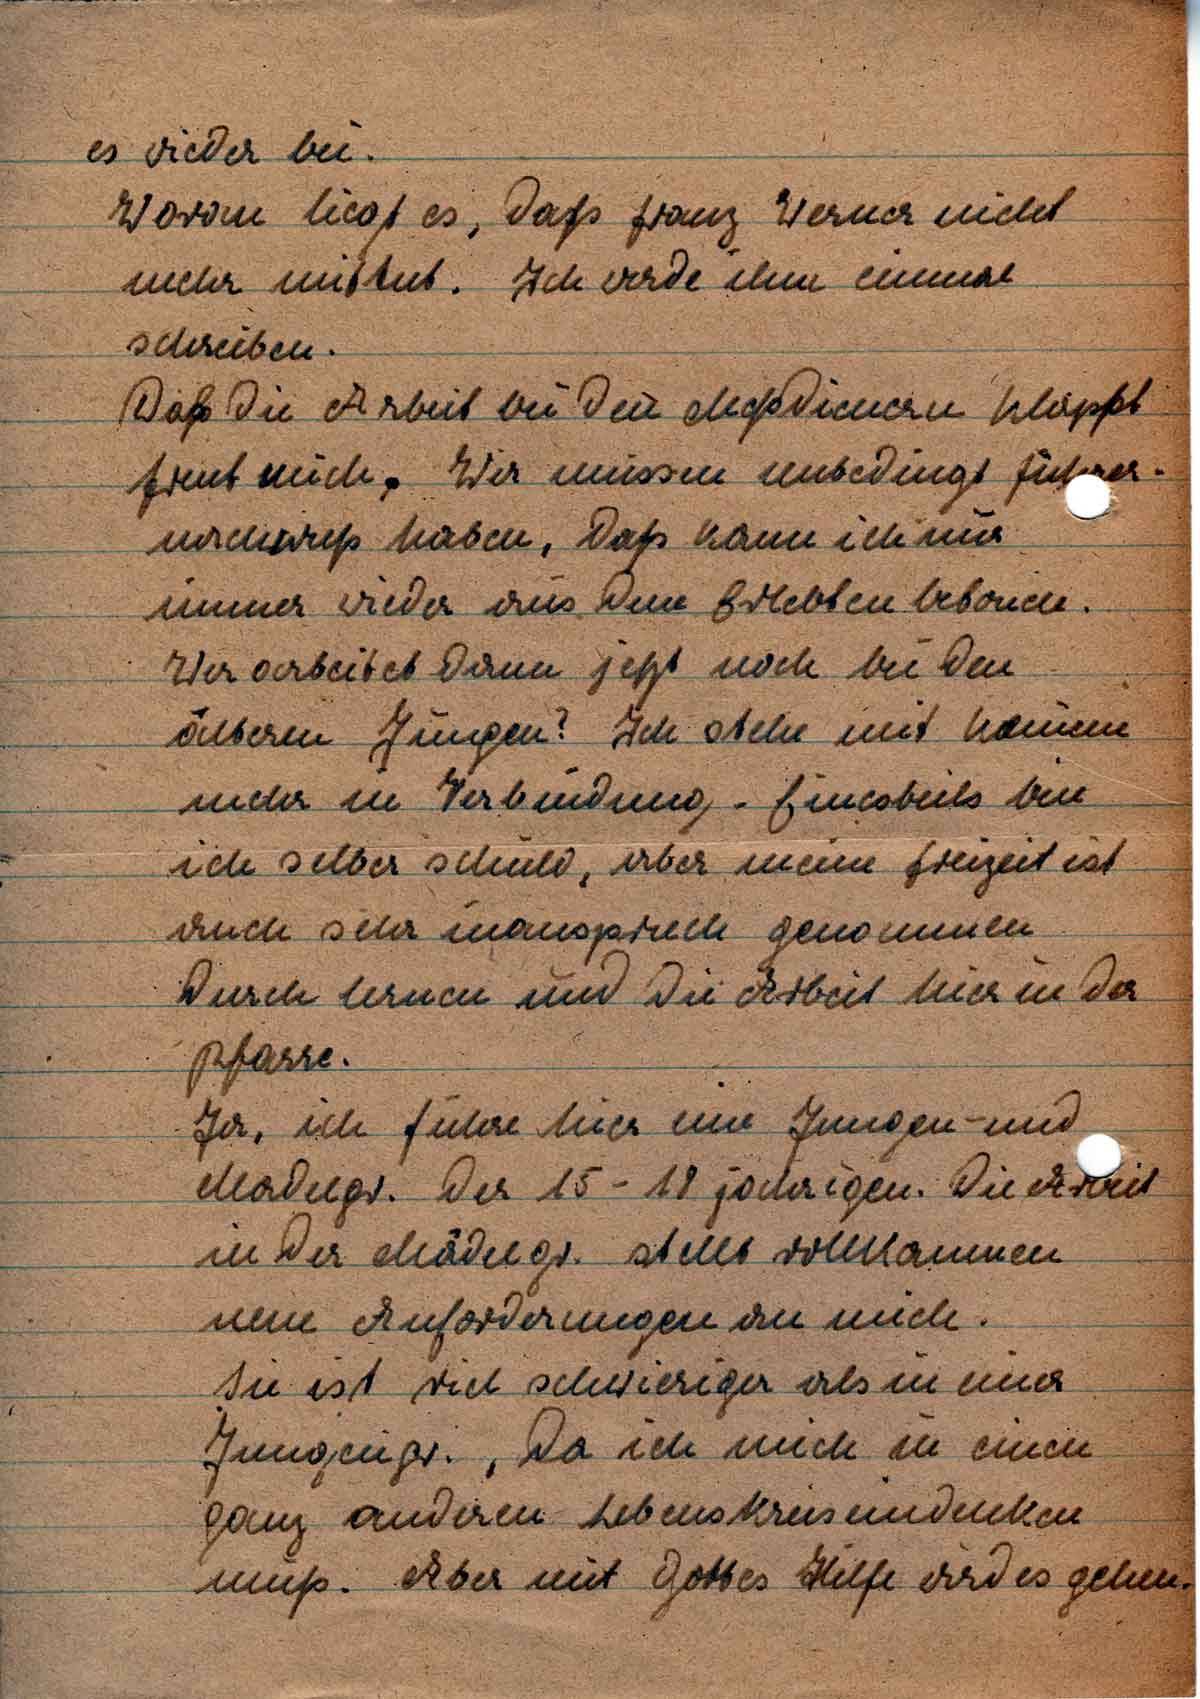 es wieder bei.
Woran liegt es, daß Franz Werner nicht
mehr mittut. Ich werde ihm einmal
schreiben.
Daß die Arbeit bei den Meßdienern klappt
freut mich. Wir müssen unbedingt Führer-
nachwuß haben, daß kann ich nur
immer wieder aus dem Erlebten betonen.
Wer arbeitet dann jetzt noch bei den
älteren Jungen? Ich stehe mit keinem
mehr in Verbindung. Einesteils bin
ich selber schuld, aber meine Freizeit ist
auch sehr inanspruch genommen
durch lernen und die Arbeit hier in der
Pfarre.
Ja, ich führe hier eine Jungen- und
Mädelgr. der 15-18 jährigen. Die Arbeit
in der Mädelgr. stellt vollkommen
neue Anforderungen an mich.
Sie ist viel schwieriger als in einer
Jungengr., da ich mich in einen
ganz anderen Lebenskreis eindenken
muß. Aber mit Gottes Hilfe wird es gehen.